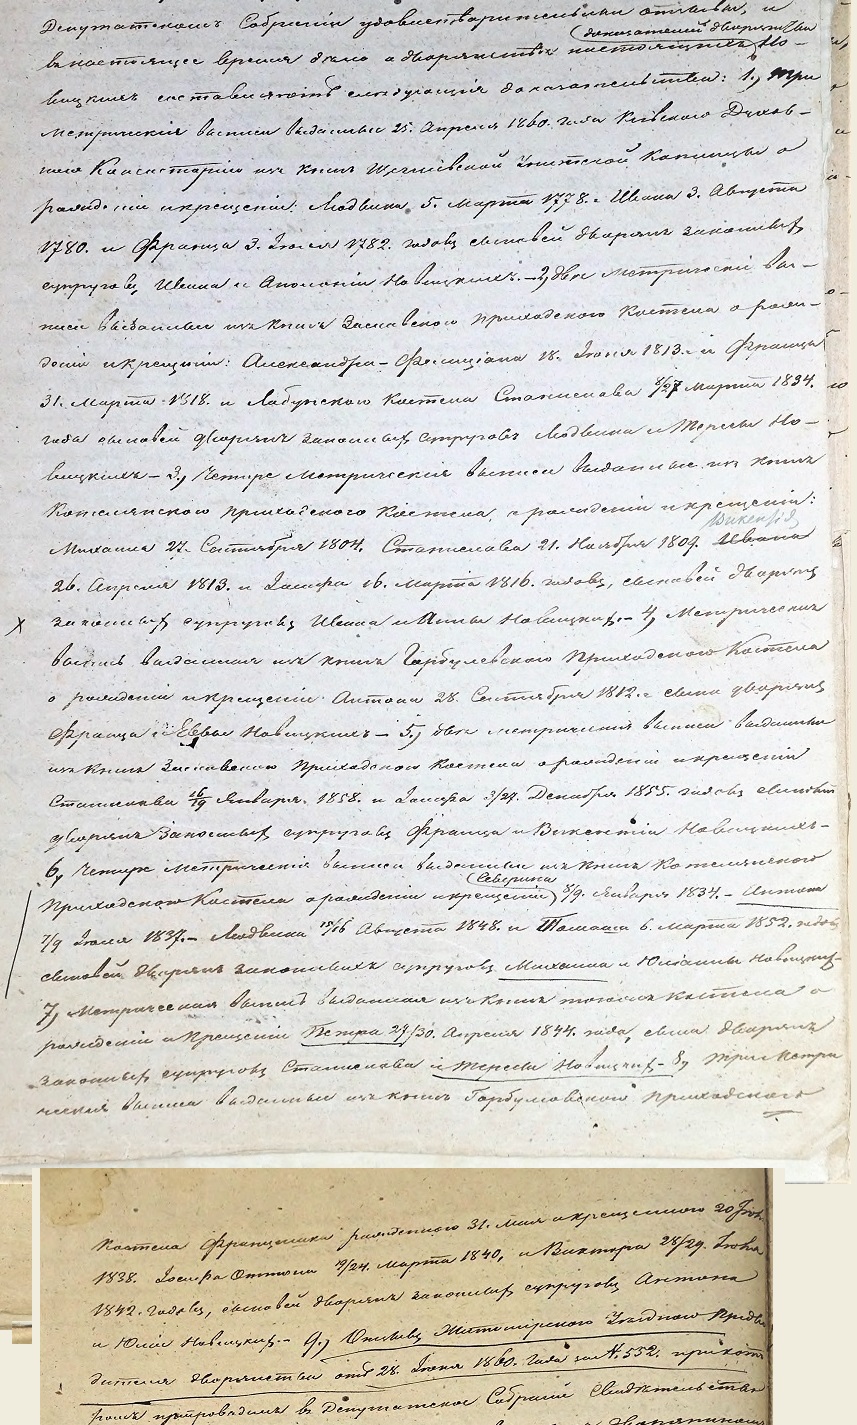 Депутатскомъ Собраніи удовлетворительными отзывы, и
доказателей дворянства
въ настоящее время дѣло о дворянствѣ настоящихъ Но-
вицкихъ составляютъ слѣдующія доказательства: 1, три
Метрическія выписи выданныя 25. Апрѣля 1860. года Кіевскою Духов-
ною Консисторіею изъ книгъ Уніятской о
рожденіи и крещеніи: Людвика 5. Марта 1778. Ивана 3. Августа
1780. и Франца 3. Іюля 1782. годовъ сыновей дворянъ законныхъ
супруговъ, Ивана и Аполоніи Новицкихъ. – 2, двѣ метрическія вы-
писи выданныя изъ книгъ Заславскаго приходскаго Костела о рож-
деніи и крещеніи: Александра-Фелиціана 18. Іюня 1813. и Франца
31. Марта 1818. и Лабунскаго Костела Станислава 8/27 Марта 1834.
года сыновей дворянъ законныхъ супруговъ Людвика и Терезы Но-
вицкихъ – 3, Четыре Метрическія выписи выданные изъ книгъ
Котелянскаго приходскаго Костела, о рожденіи и крещеніи:
Викентія
Михаила 27. Сентября 1804. Станислава 21. Ноября 1809. Ивана
26. Апрѣля 1813. и Іосифа 16. Марта 1816. годовъ, сыновей дворянъ
законныхъ супруговъ Ивана и Анны Новицкихъ. – 4, Метрическая
выпись выданная изъ книгъ Горбулевскаго Приходскаго Костела
о рожденіи и крещеніи Антона 28. Сентября 1812. сына дворянъ
Франца и Еввы Новицкихъ – 5, двѣ метрическія выписи выданныя
изъ книгъ Заславскаго Приходскаго Костела о рожденіи и крещеніи
Станислава 16/19 Января 1858. и Іосифа 3/27. Декабря 1855. годовъ сыновей
дворянъ Законныхъ супруговъ Франца и Викентіи Новицкихъ –
6, Четыре Метрическія выписи выданныя изъ книгъ Котелянскаго
Северина
Приходскаго Костела о рожденіи и крещеніи 8/9. Января 1834. – Антона
7/9 Іюля 1837. – Людвика 15/16 Августа 1848. и Томаша 6. Марта 1852. годовъ
сыновей дворянъ законныхъ супруговъ Михаила и Юліанны Новицкихъ –
7, Метрическая выпись выданная изъ книгъ тогоже Костела о
рожденіи и крещеніи Петра 27/30. Апрѣля 1844. года, сына дворянъ
законныхъ супруговъ Станислава и Терезы Новицкихъ – 8, Три Метри
ческія выписи выданныя изъ книгъ Горбулевскаго приходскаго
Костела Францишка рожденнаго 31. Мая и крещеннаго 20 Іюня
1838. Іосифа Оттона 19/24. Марта 1840, и Виктора 28/29. Іюня
1842. годовъ, сыновей дворянъ законныхъ супруговъ Антона
и Юліи Новицкихъ – 9, Отзывъ Житомірскаго Уѣзднаго Предво
дителя дворянства отъ 28. Іюня 1860. года за №. 552. при кото
ромъ препроводилъ въ Депутатское Собраніе Свидѣтельство